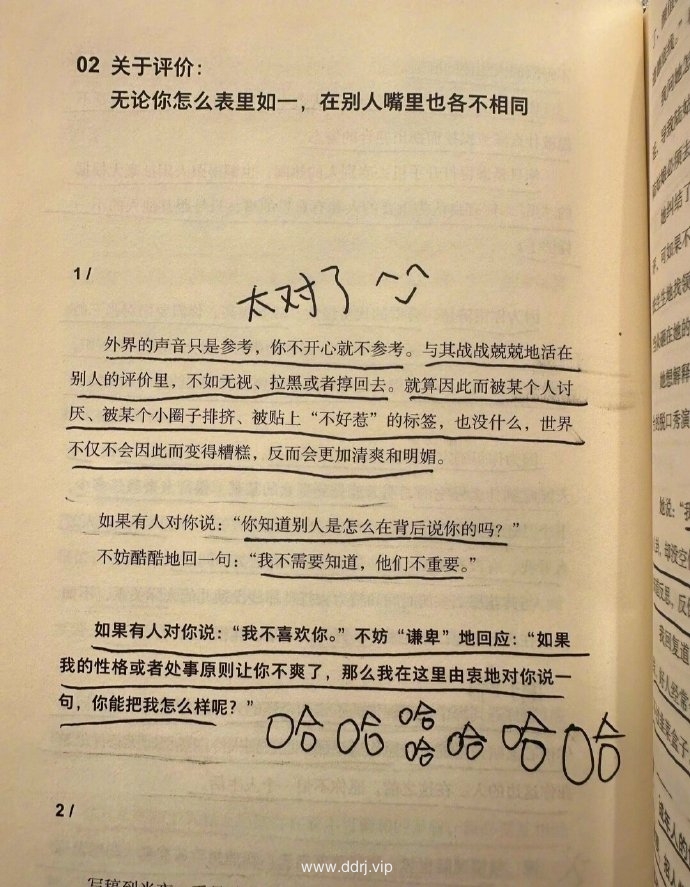 02 关于评价：
无论你怎么表里如一，在别人嘴里也各不相同
1 /
太对了
外界的声音只是参考，你不开心就不参考。与其战战兢兢地活在
别人的评价里，不如无视、拉黑或者撑回去。就算因此而被某个人讨
厌、被某个小圈子排挤、被贴上“不好惹”的标签，也没什么，世界
不仅不会因此而变得糟糕，反而会更加清爽和明媚。
如果有人对你说：“你知道别人是怎么在背后说你的吗？”
不妨酷酷地回一句：“我不需要知道，他们不重要。”
如果有人对你说：“我不喜欢你。”不妨“谦卑”地回应：“如果
我的性格或者处事原则让你不爽了，那么我在这里由衷地对你说一
句，你能把我怎么样呢？”
哈哈哈哈哈哈哈
2 /
www.ddrj.vip